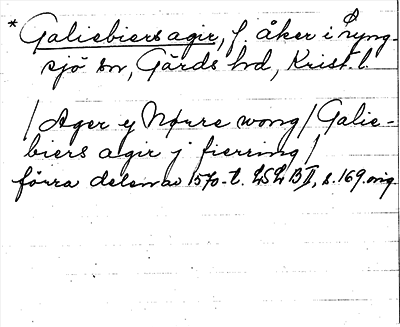 *Galiebiers agir, f. åker i Lyng-
sjö sn, Gärds hd, Krist. l.
/Ager ej Nørre wong/Galie-
biers agir j fierring/
förra delen av 1570-t. LSL BII, s. 169. orig.